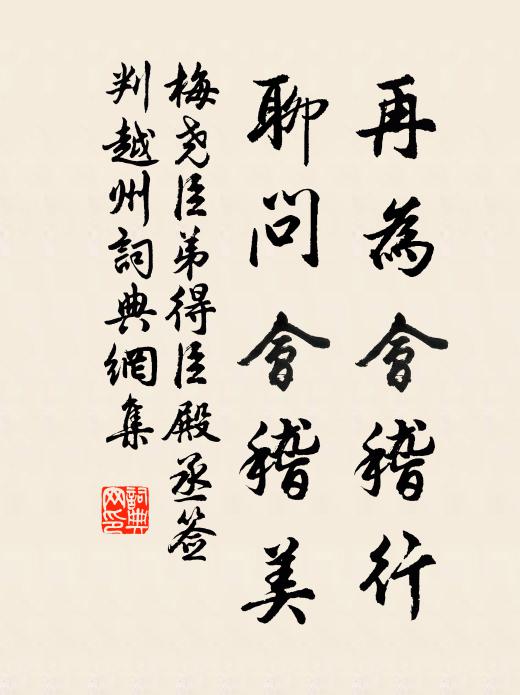 再為會稽行
聊問會稽美
梅尧臣弟得臣殿丞签
判越州詞典網集
詞典
网印